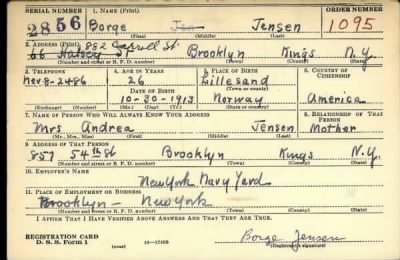 SERIAL NUMBER 1. NAME (Print) ORDER NUMBER
2856 Borge Jensen 1095
(First) (Middle) (Last)
2. ADDRESS (Print) 882 Carroll St.
66 Halsey St Brooklyn Kings N.Y.
(Number and street or R. F. D. number) (Town) (County) (State)
3. TELEPHONE 4. AGE IN YEARS 5. PLACE OF BIRTH 6. COUNTRY OF CITIZENSHIP
Nev 8-2486 26 Lillesand
DATE OF BIRTH (Town or county)
10-30-1913 Norway America
(Exchange) (Number) (Mo.) (Day) (Yr.) (State or country)
7. NAME OF PERSON WHO WILL ALWAYS KNOW YOUR ADDRESS 8. RELATIONSHIP OF THAT PERSON
Mrs Andrea Jensen Mother
(Mr., Mrs., Miss) (First) (Middle) (Last)
9. ADDRESS OF THAT PERSON
857 54th St Brooklyn Kings N.Y.
(Number and street or R. F. D. number) (Town) (County) (State)
10. EMPLOYER'S NAME
New York Navy Yard
11. PLACE OF EMPLOYMENT OR BUSINESS
Brooklyn - New York
(Number and street or R. F. D. number) (Town) (County) (State)
I AFFIRM THAT I HAVE VERIFIED ABOVE ANSWERS AND THAT THEY ARE TRUE.
REGISTRATION CARD
D. S. S. Form 1 (over) 16-17105 Borge Jensen
(Registrant's signature)